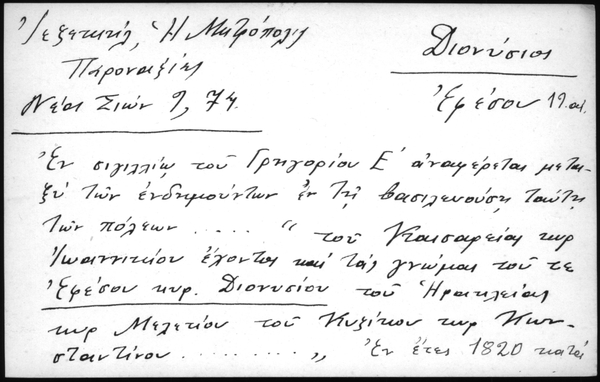 Ἰεζεκιήλ, Ἡ Μητρόπολις
Παροναξίας
Νέας Σιών 9, 74.
Διονύσιος
Ἐφέσου 19.αἰ.
Ἐν σιγιλλίῳ τοῦ Γρηγορίου Ε΄ ἀναφέρεται μετα-
ξύ τῶν ἐνδημούντων ἐν τῇ βασιλευούσῃ ταύτῃ
τῶν πόλεων ..... " τοῦ Καισαρείας κυρ
Ἰωαννικίου ἔχοντος καί τάς γνώμας τοῦ τε
Ἐφέσου κυρ. Διονυσίου τοῦ Ἡρακλείας
κυρ Μελετίου τοῦ Κυζίκου κυρ Κων-
σταντίνου .......... „ Ἐν ἔτει 1820 κατά